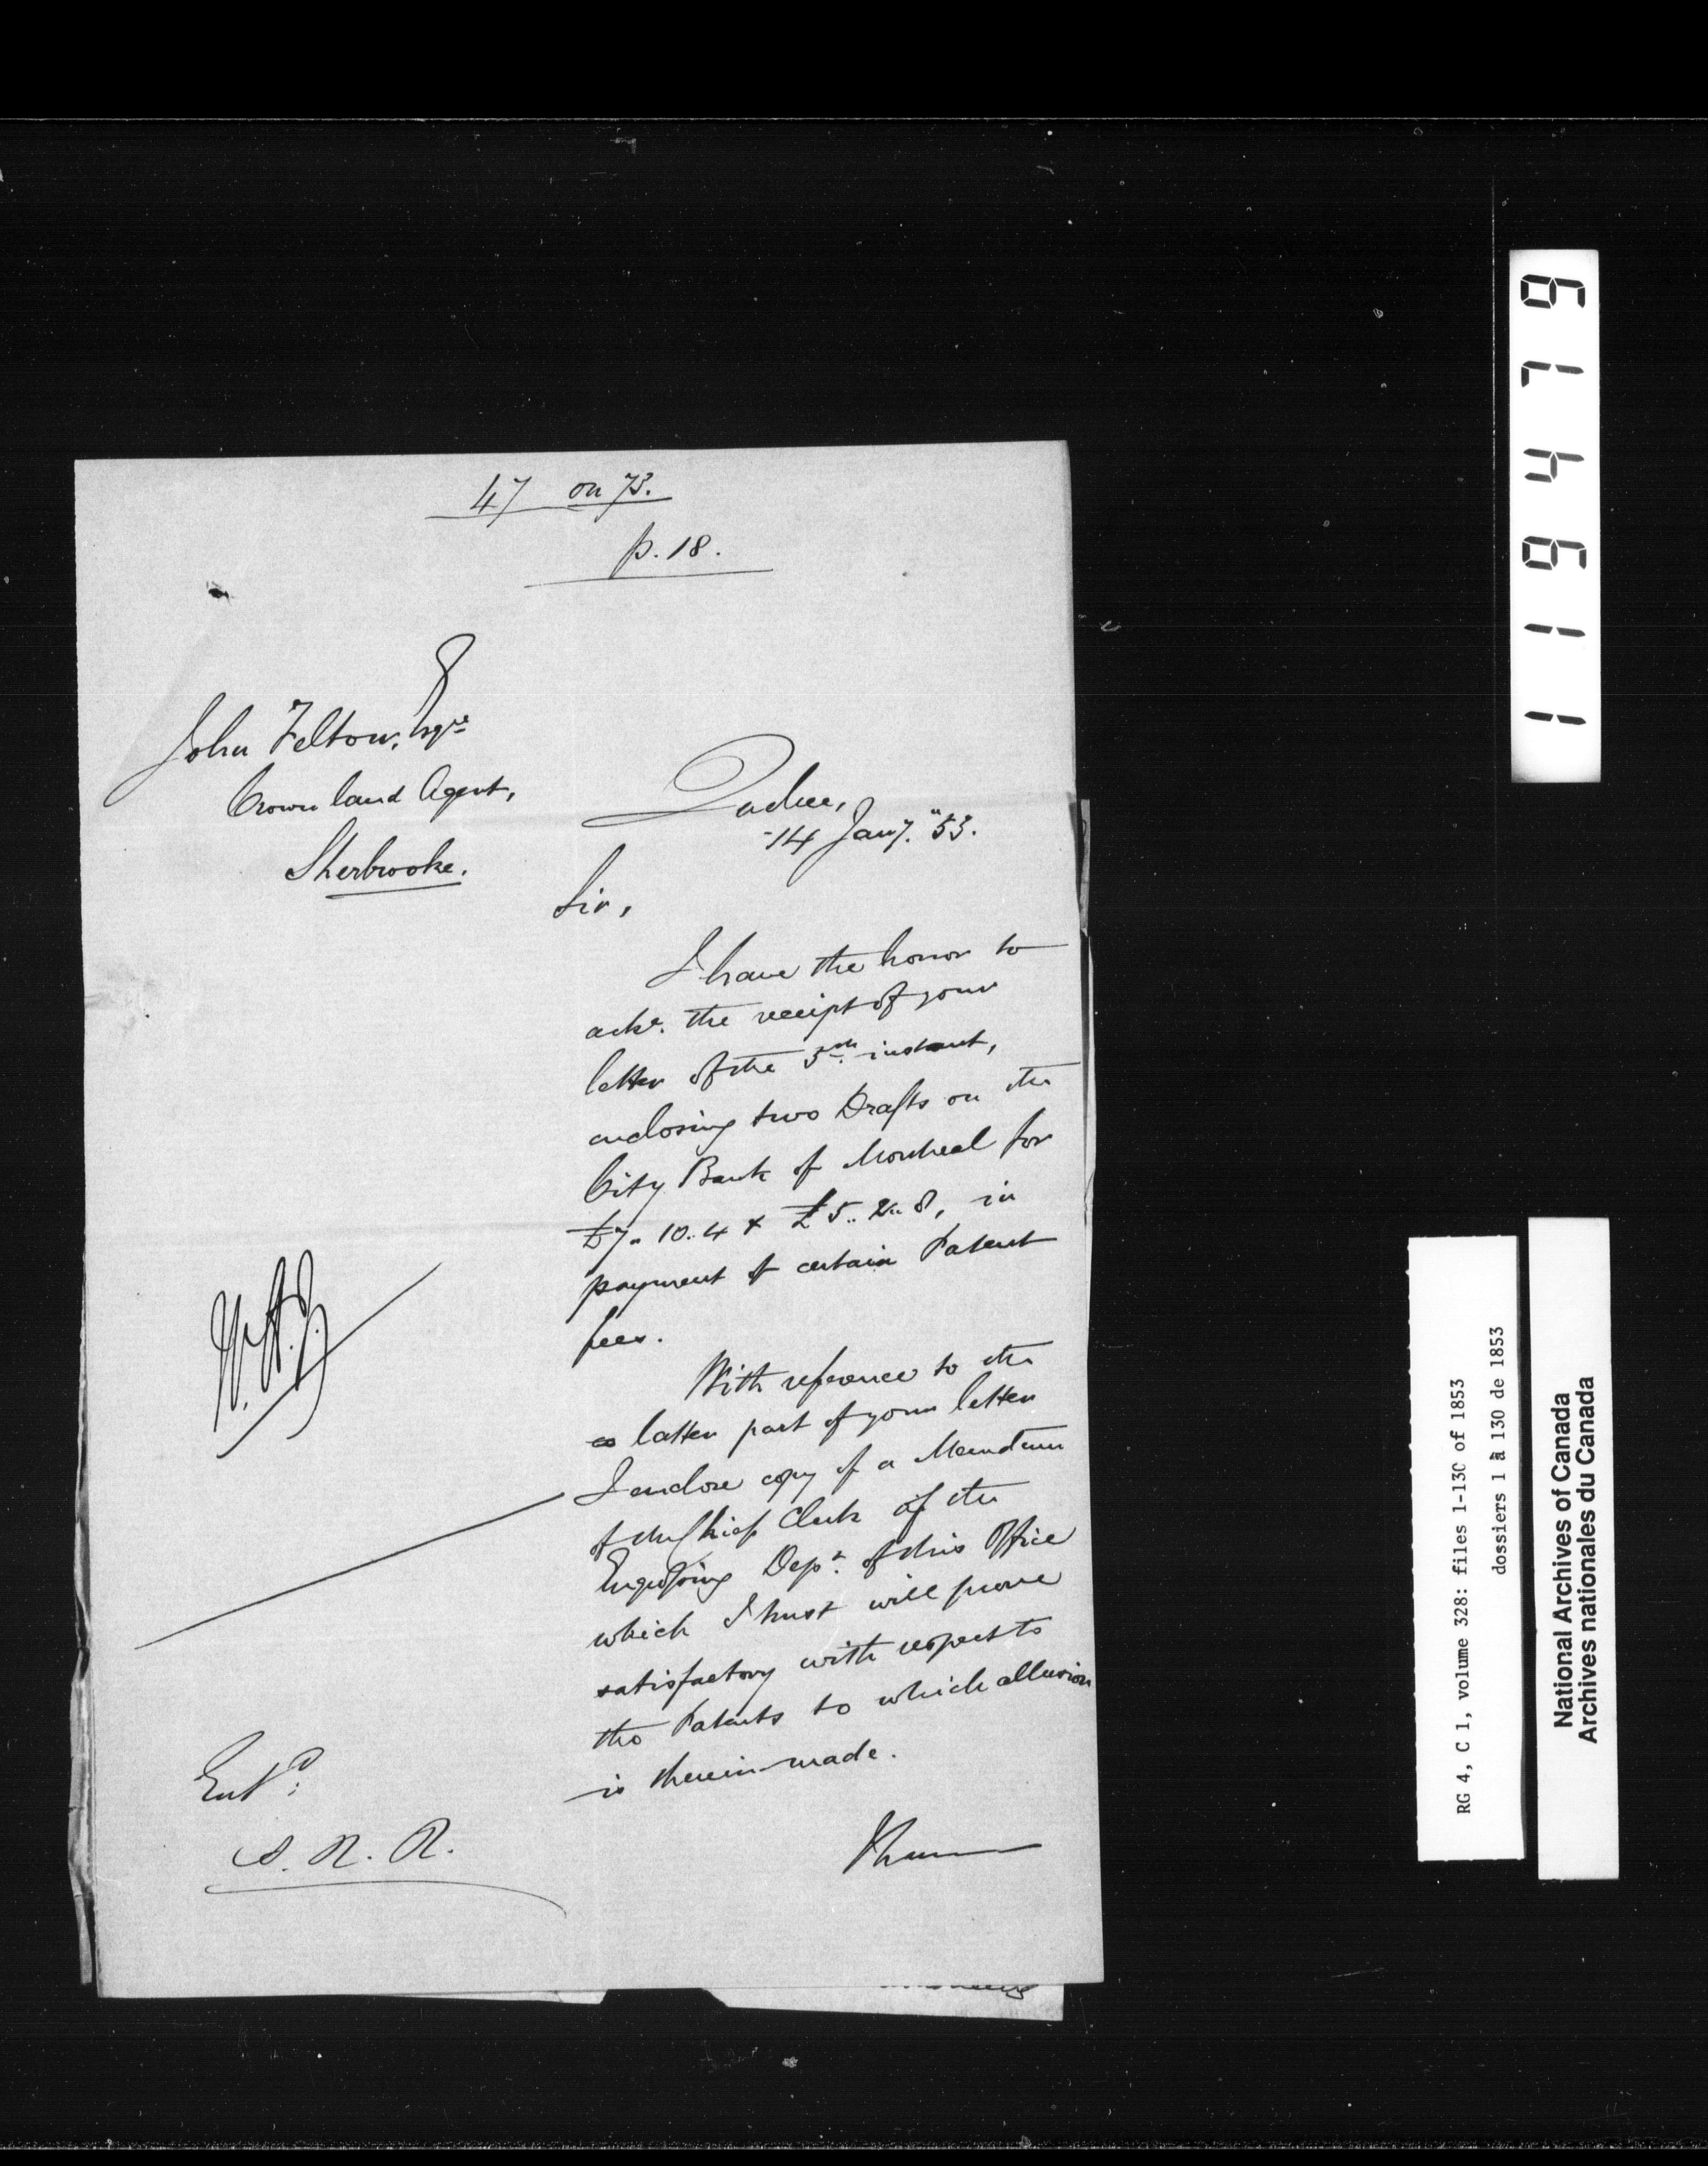 47 on 73.
p. 18.
John Felton, Esqre
Crown land Agent,
Sherbrooke.
Quebec,
14 Jany. "53.
Sir,
I have the honor to
acke. the receipt of your
letter of the 5th instant,
enclosing two Drafts on the
City Bank of Montreal for
£7.. 10..4 & £5..2..8, in
payment of certain Patent
fees.
With reference to the
latter part of your letter
I enclose copy of a Memdum
of the Chief Clerk of the
Engrossing Dept. of this Office
which I trust will prove
satisfactory with respect to
the Patents to which allusion
is therein made.
Entd:
A. R. R.
119479
RG 4, C 1, volume 328: files 1-130 of 1853
dossiers 1 à 130 de 1853
National Archives of Canada
Archives nationales du Canada